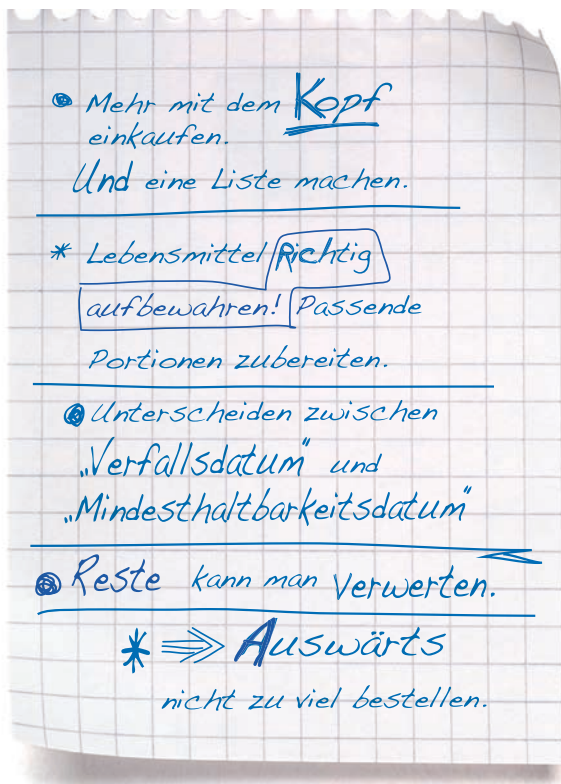 Mehr mit dem Kopf
einkaufen.
Und eine Liste machen.
* Lebensmittel Richtig
aufbewahren! Passende
Portionen zubereiten.
Unterscheiden zwischen
„Verfallsdatum" und
„Mindesthaltbarkeitsdatum"
Reste kann man verwerten.
* ⇒ Auswärts
nicht zu viel bestellen.